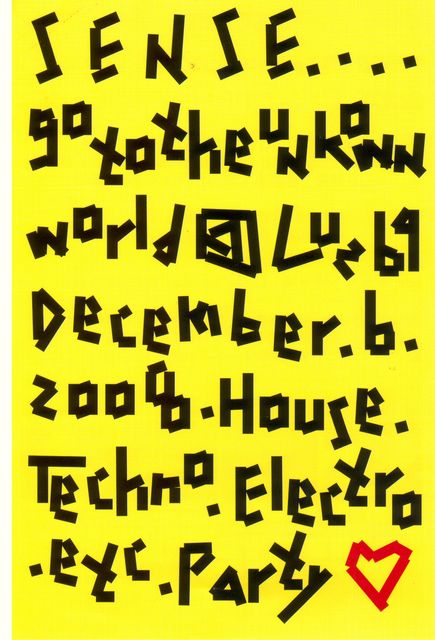 SENSE....
gototheunkown
world @ Luz69
December.6.
2008.House.
Techno.Electro
.etc.Party